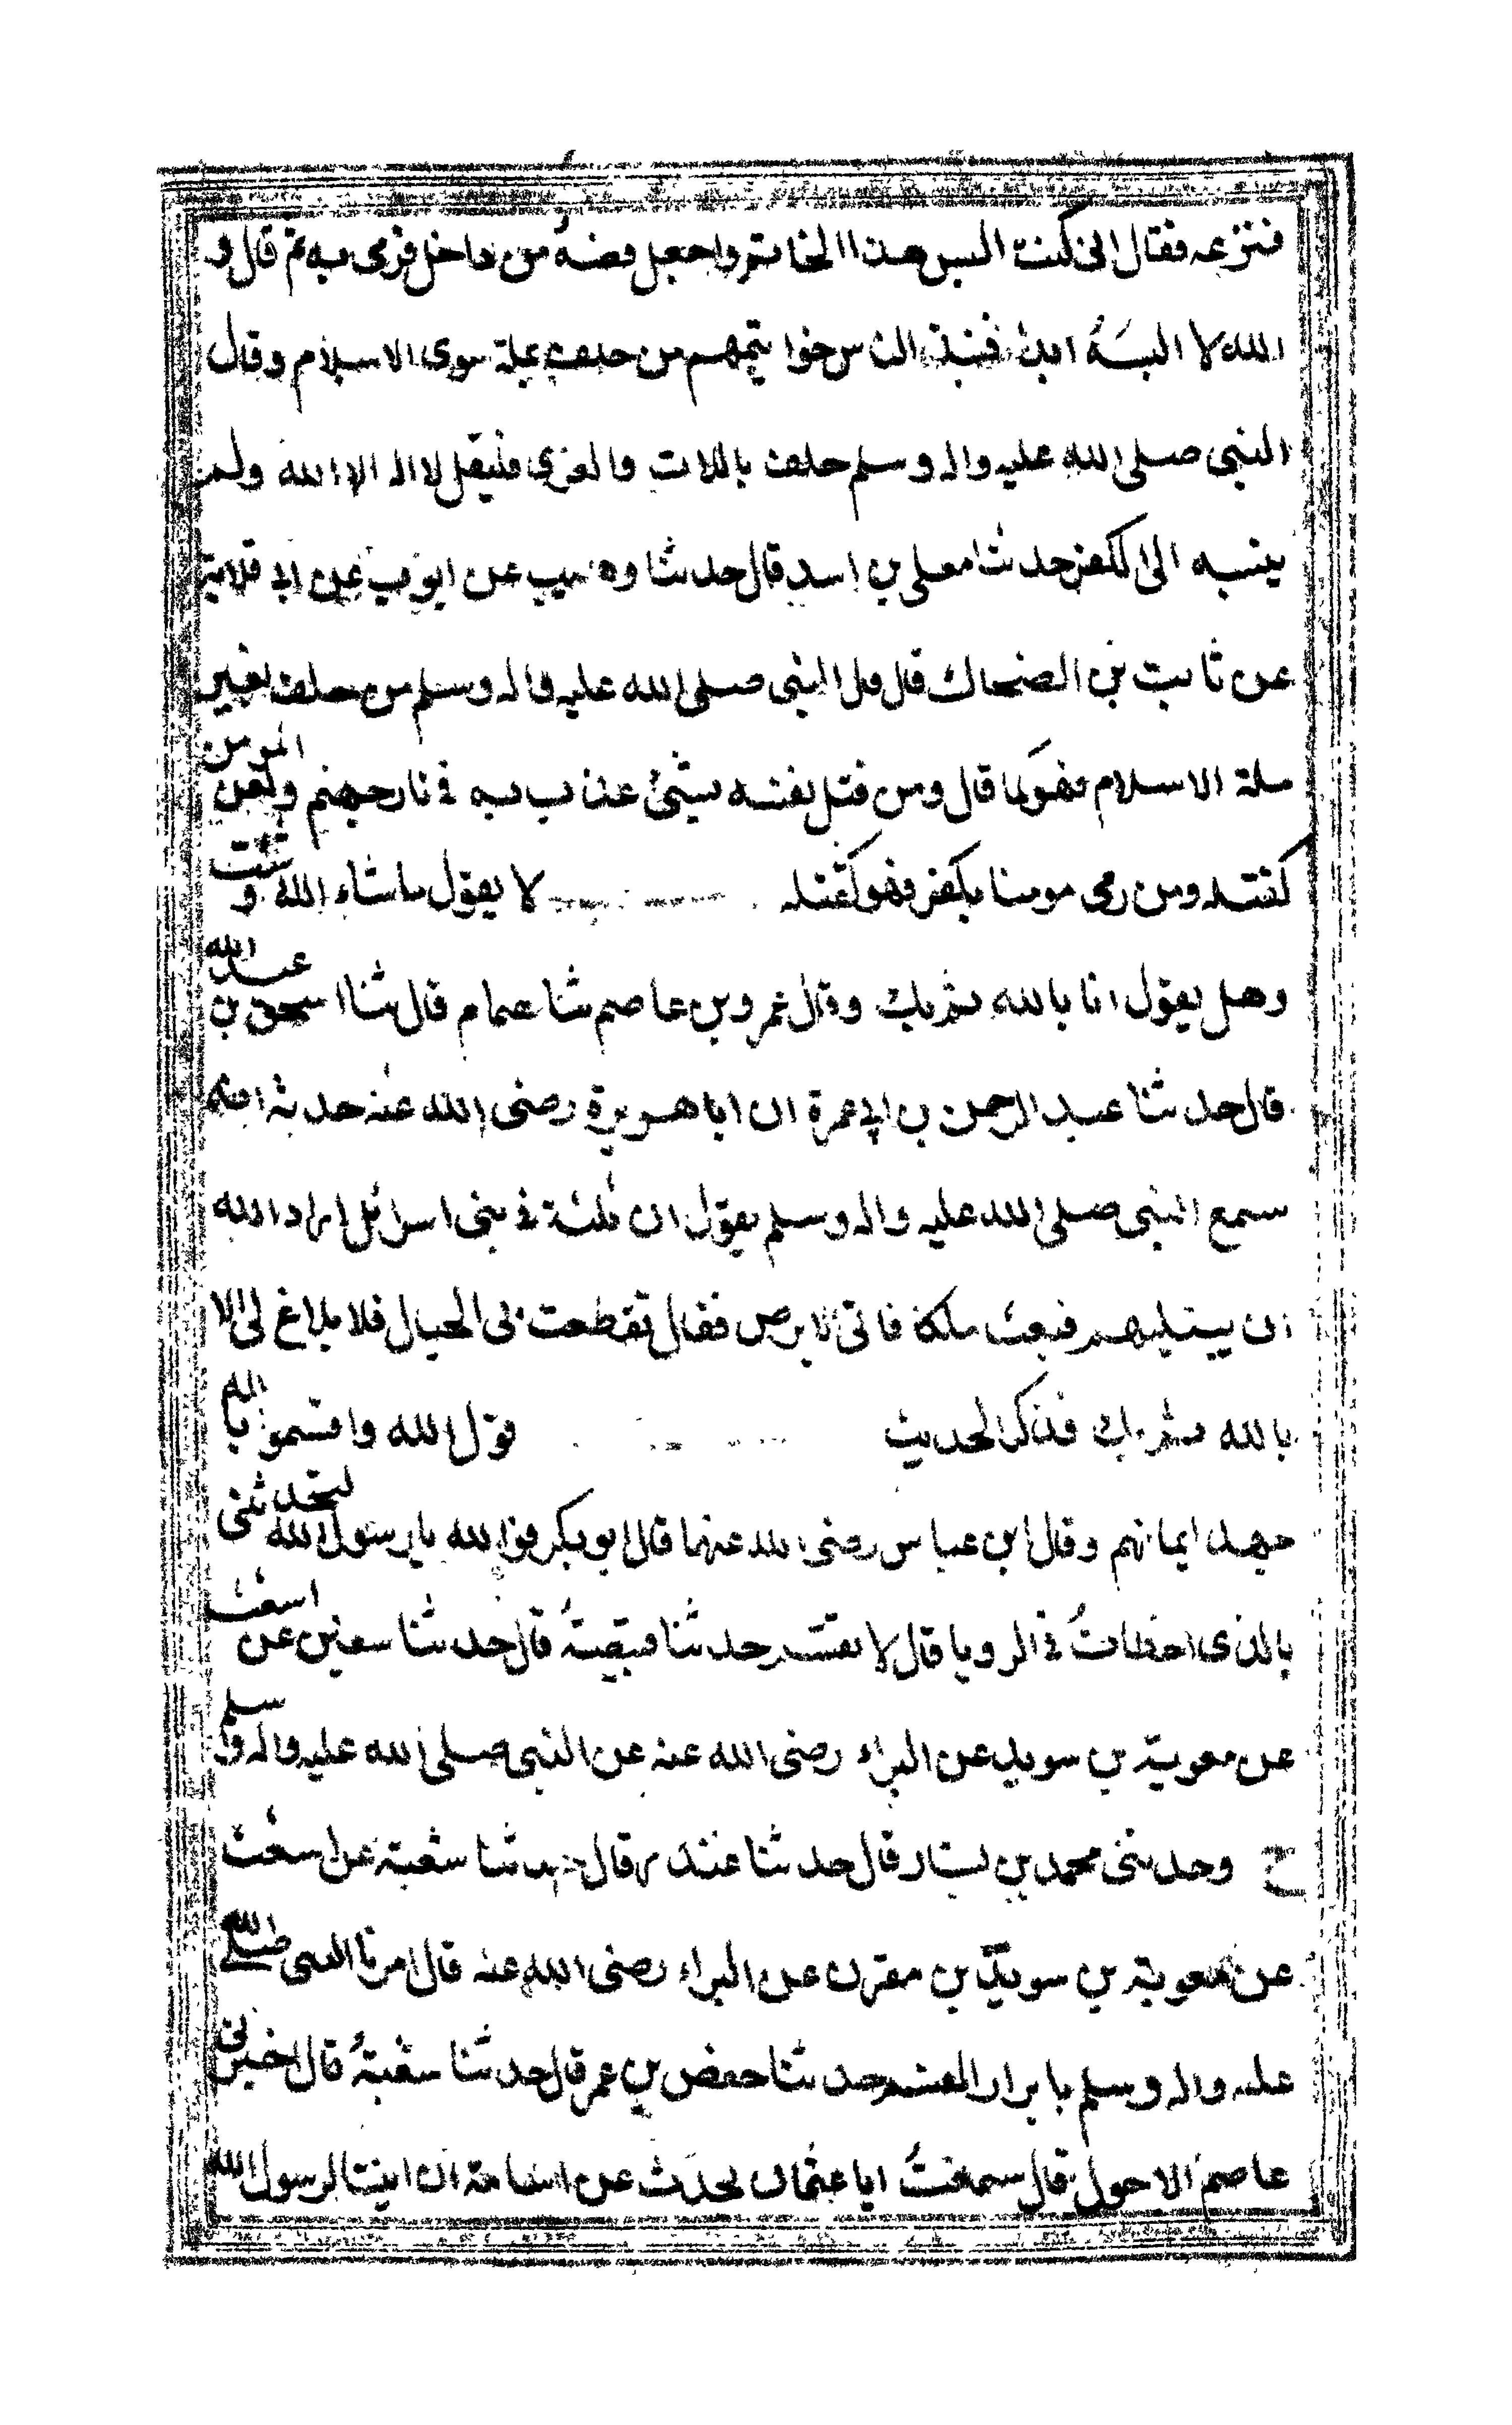 فنزعه فقال انى كنت البس هذا الخاتم واجعل فصه من داخل فرمى به ثم قال و
الله لا البسه ابدا فنبذ الناس خواتيمهم من حلف بملة سوى الاسلام وقال
النبى صلى الله عليه واله وسلم حلف باللات والعزى فليقل لا اله الا الله ولم
ينسبه الى الكفر حدثنا معلى بن اسد قال حدثنا وهيب عن ايوب عن ابى قلابة
عن ثابت بن الضحاك قال قال النبى صلى الله عليه واله وسلم من حلف بغير
ملة الاسلام فهو كما قال ومن قتل نفسه بشئ عذب به فى نار جهنم ولعن المومن
كقتله ومن رمى مومنا بكفر فهو كقتله لا يقول ما شاء الله و شئت
وهل يقول انا بالله ثم بك وقال عمرو بن عاصم ثنا همام قال ثنا اسحق بن عبد الله
قال حدثنا عبد الرحمن بن ابى عمرة ان ابا هريرة رضى الله عنه حدثه انه
سمع النبى صلى الله عليه واله وسلم يقول ان ثلثة فى بنى اسرائل اراد الله
ان يبتليهم فبعث ملكا فاتى الابرص فقال تقطعت بى الحبال فلا بلاغ لى الا
بالله ثم بك فذكر الحديث قول الله واقسموا بالله
جهد ايمانهم وقال ابن عباس رضى الله عنهما قال ابو بكر فوالله يا رسول الله لتحدثنى
بالذى اخطات فى الرويا قال لا تقسم حدثنا قبيصة قال حدثنا سفين عن اشعث
عن معوية بن سويد عن البراء رضى الله عنه عن النبى صلى الله عليه واله وسلم
ح وحدثنى محمد بن بشار قال حدثنا غندر قال حدثنا شعبة عن اشعث
عن معوية بن سويد بن مقرن عن البراء رضى الله عنه قال امرنا النبى صلى الله
عليه واله وسلم بابرار المقسم حدثنا حفص بن عمر قال حدثنا شعبة قال اخبرنى
عاصم الاحول قال سمعت ابا عثمان يحدث عن اسامة ان ابنتا لرسول الله